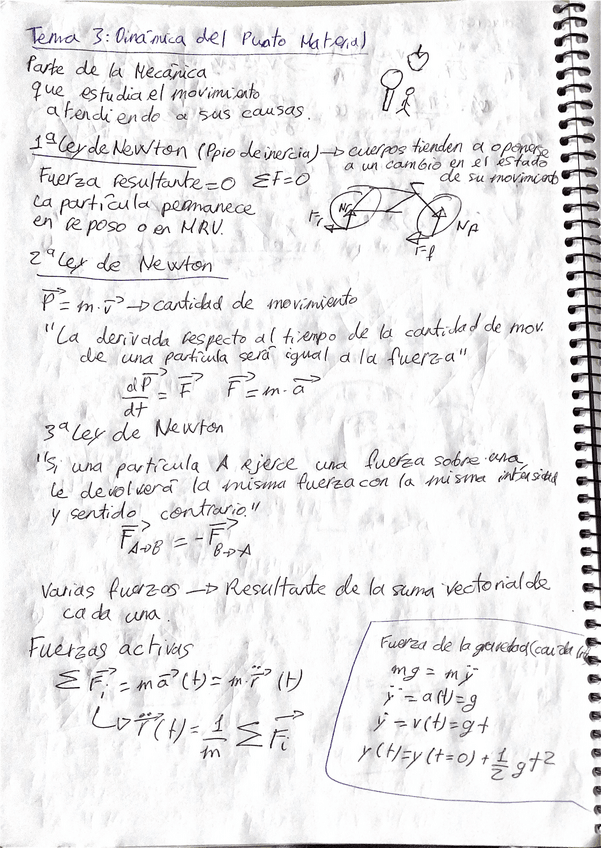 Tema 3: Dinámica del Punto Material
Parte de la Mecánica
que estudia el movimiento
atendiendo a sus causas.
1ª Ley de Newton (Ppio de inercia) → cuerpos tienden a oponerse
a un cambio en el estado
de su movimiento
Fuerza resultante = 0 ΣF=0
La partícula permanece
en reposo o en MRV.
Fr
NA
Ff
2ª Ley de Newton
P⃗ = m·v⃗ → cantidad de movimiento
"La derivada respecto al tiempo de la cantidad de mov.
de una partícula será igual a la fuerza"
dP⃗/dt = F⃗ F⃗ = m·a⃗
3ª Ley de Newton
"Si una partícula A ejerce una fuerza sobre una,
le devolverá la misma fuerza con la misma intensidad
y sentido contrario."
F⃗A→B = -F⃗B→A
Varias fuerzas → Resultante de la suma vectorial de
cada una.
Fuerzas activas
Σ F⃗i = m a⃗(t) = m·r̈⃗(t)
↳ r̈⃗(t) = 1/m Σ F⃗i
Fuerza de la gravedad (caída
mg = mÿ
ÿ = a(t) = g
ẏ = v(t) = gt
y(t) = y(t=0) + 1/2 gt2